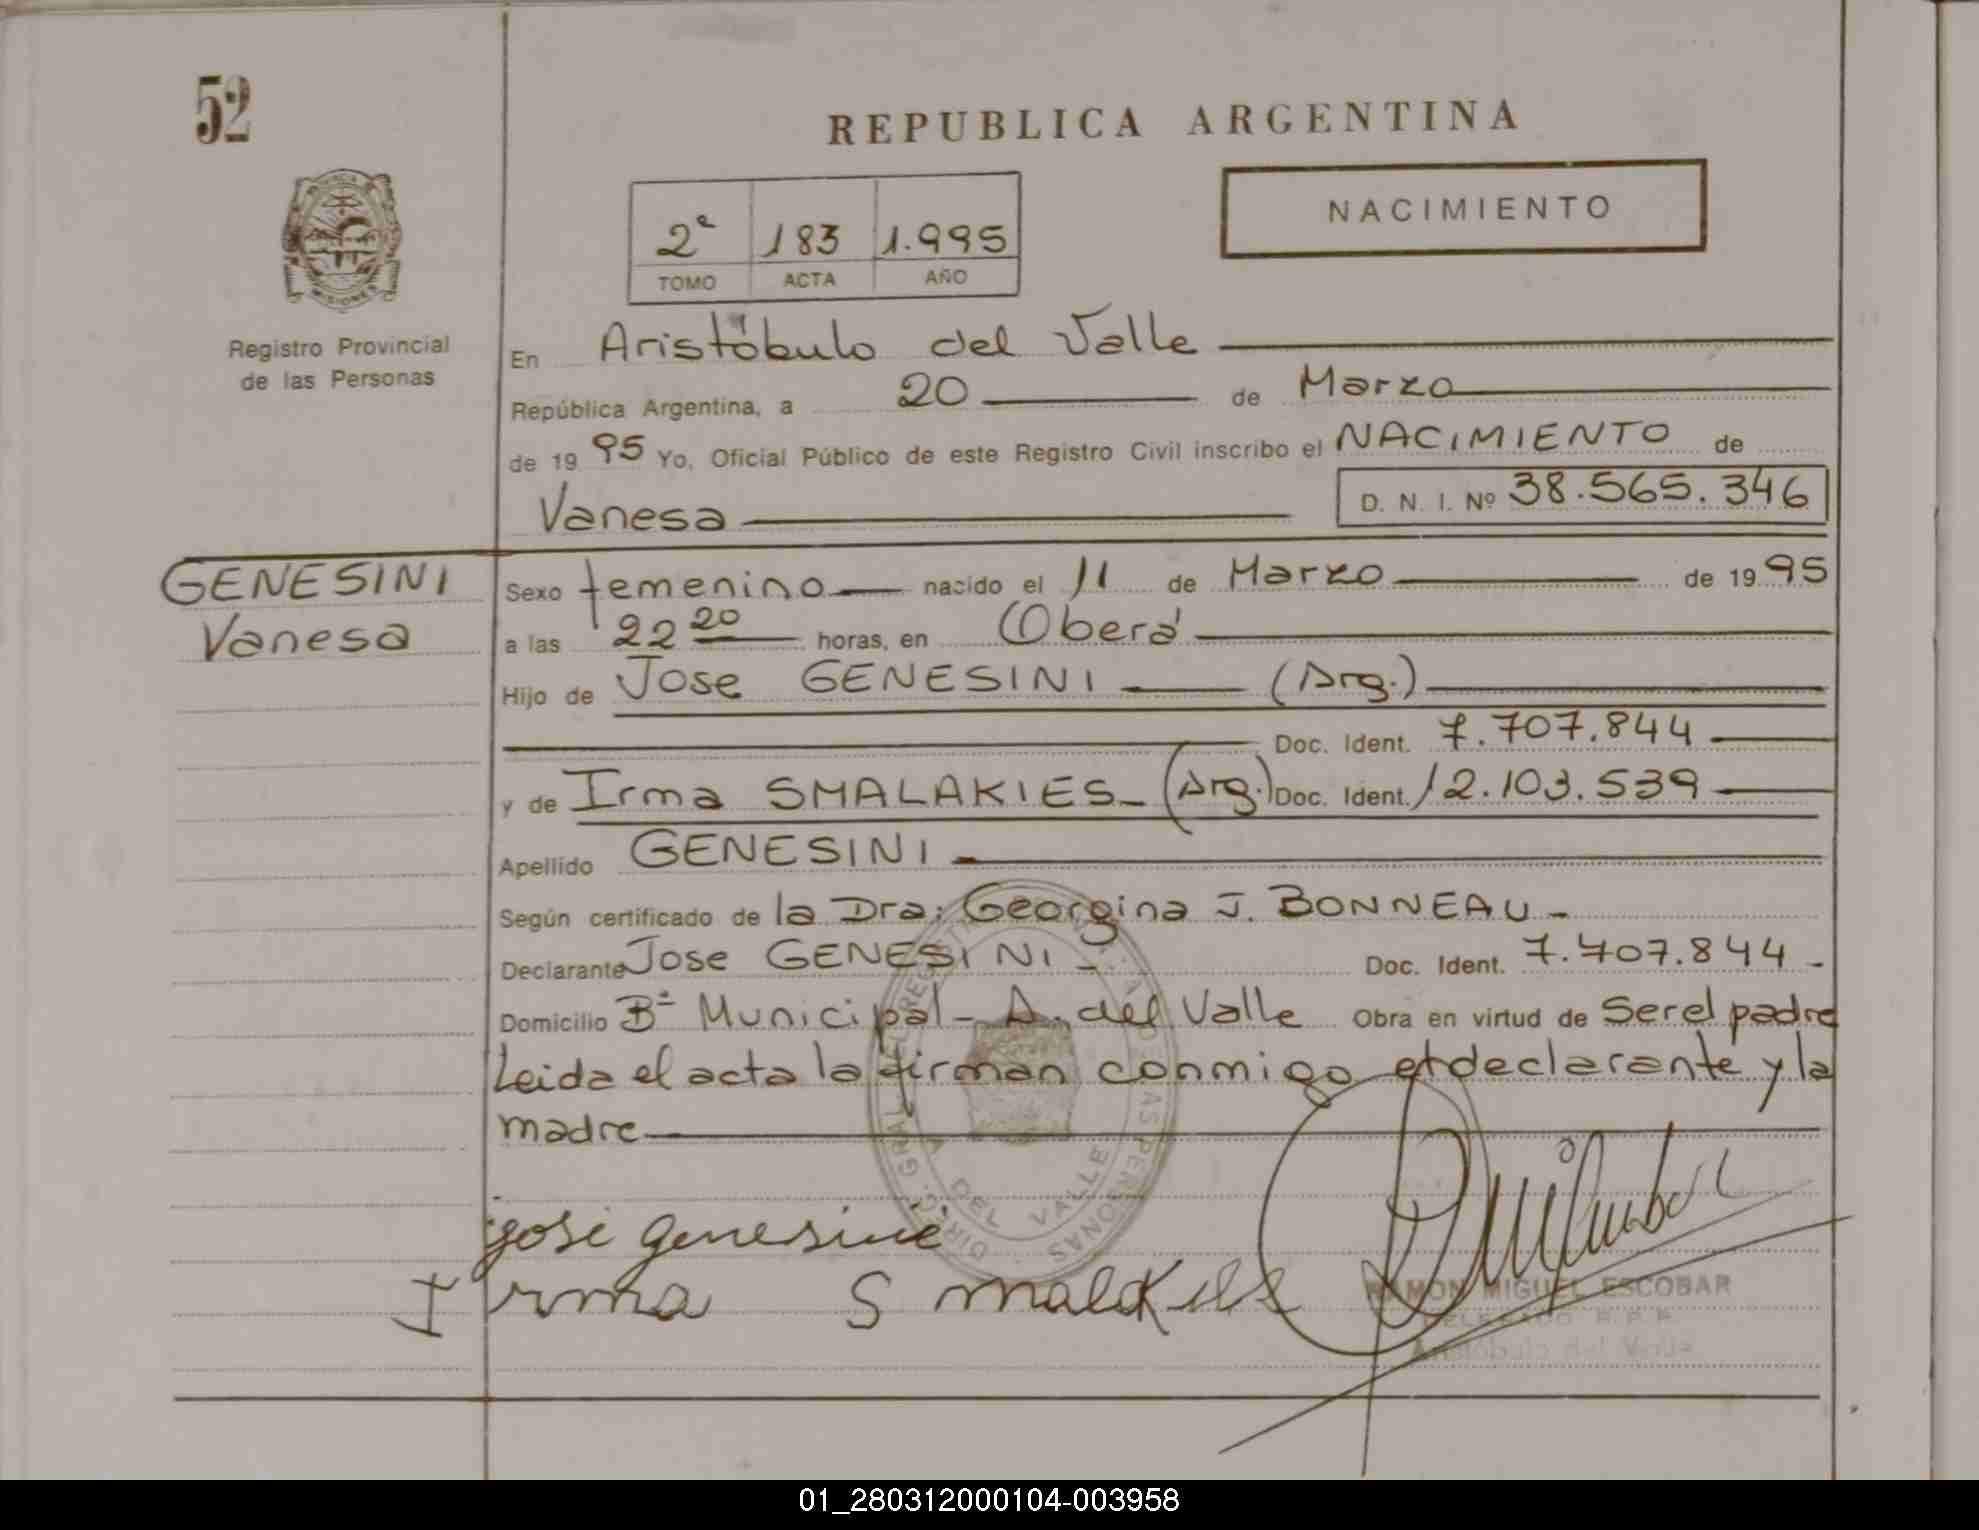 52
REPUBLICA ARGENTINA
NACIMIENTO
2º 183 1.995
TOMO ACTA AÑO
PROVINCIA DE
MISIONES
Registro Provincial
de las Personas
En Aristóbulo del Valle
República Argentina, a 20 de Marzo
de 19 95 Yo, Oficial Público de este Registro Civil inscribo el NACIMIENTO de
Vanesa D. N. I. Nº 38.565.346
GENESINI
Vanesa
Sexo femenino nacido el 11 de Marzo de 19 95
a las 22 20 horas, en Oberá
Hijo de Jose GENESINI (Arg.)
Doc. Ident. 7.707.844
y de Irma SMALAKIES (Arg.) Doc. Ident. 12.103.539
Apellido GENESINI
Según certificado de la Dra: Georgina J. BONNEAU
Declarante Jose GENESINI Doc. Ident. 7.707.844
Domicilio Bº Municipal - A. del Valle Obra en virtud de Ser el padre
Leida el acta la firman conmigo el declarante y la
madre
josé genesini
Irma Smalakies
RAMON MIGUEL ESCOBAR
DELEGADO R. P. P.
Aristóbulo del Valle
DEL VALLE
01_280312000104-003958